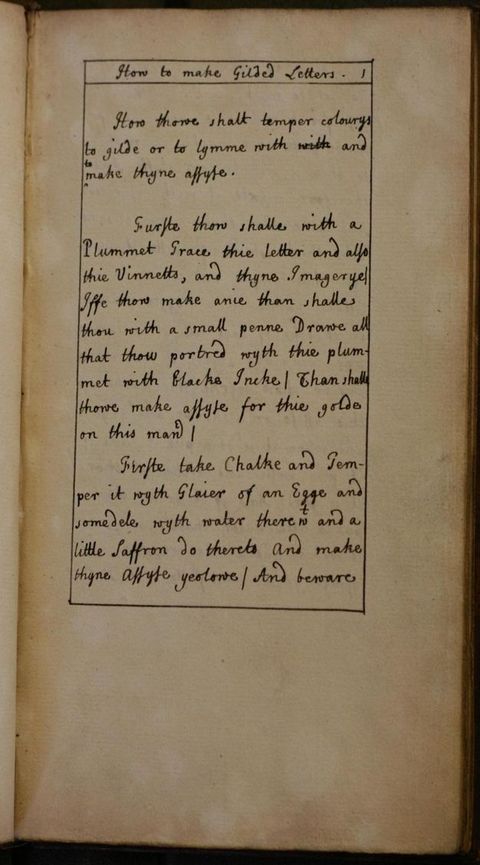 How to make Gilded Letters. 1
How thowe shalt temper colourys
to gilde or to lymme with with and
to
make thyne assyse.
Furste thow shalle with a
Plummet Trace thie letter and also
thie Vinnetts, and thyne Imagerye/
Iffe thow make anie than shalle
thou with a small penne Drawe all
that thow portred wyth thie plum-
met with Blacke Incke / Than shalle
thowe make assyse for thie golde
on this manr /
Firste take Chalke and Tem-
per it wyth Glaier of an Egge and
somedele wyth water therewt and a
little Saffron do thereto And make
thyne Assyse yeolowe / And beware